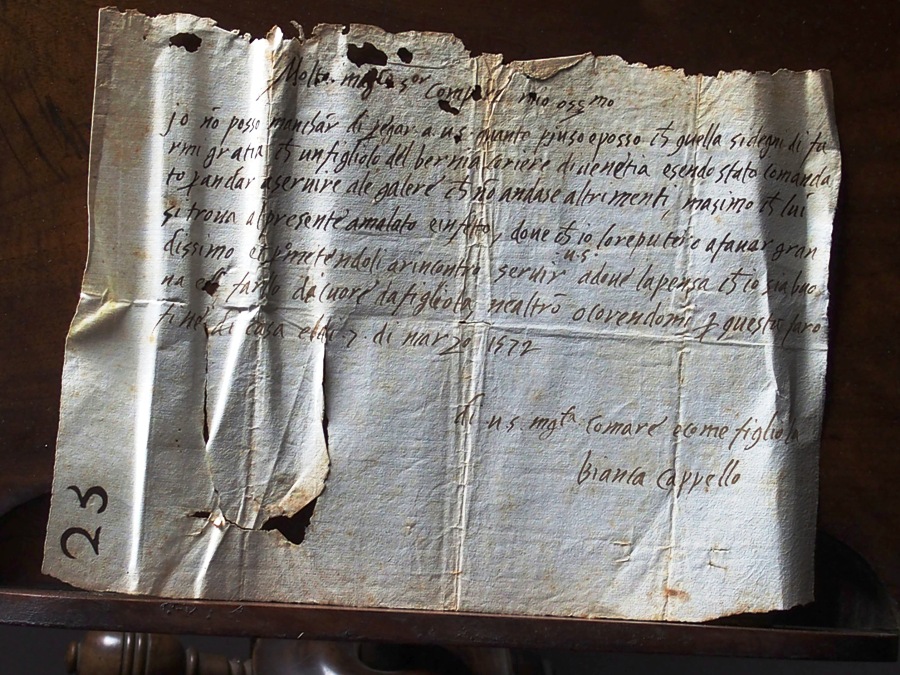 Molto mag.ca s.or compare mio oss.mo
jo nō posso manchar di pegar a v.s. quanto piu so e posso ch̄ quella si degni di fa
rmi gratia ch̄ un figliolo del bernia coriere di venetia esendo stato comanda
to p andar a servire ale galere ch̄ nō andase altrimenti, masimo ch̄ lui
si trova al presente amalato e infeto, dove ch̄ io lo reputerè a favor gran
dissimo et p metendoli a rincontro servir v.s. adove la pensa ch̄ io sia buo
na farlo da cuore da figliola, ne altrō ocorendomi p questa faro
fine di casa el di 7 di marzo 1572
di v.s. mg.ta comare e come figliola
bianca cappello
23